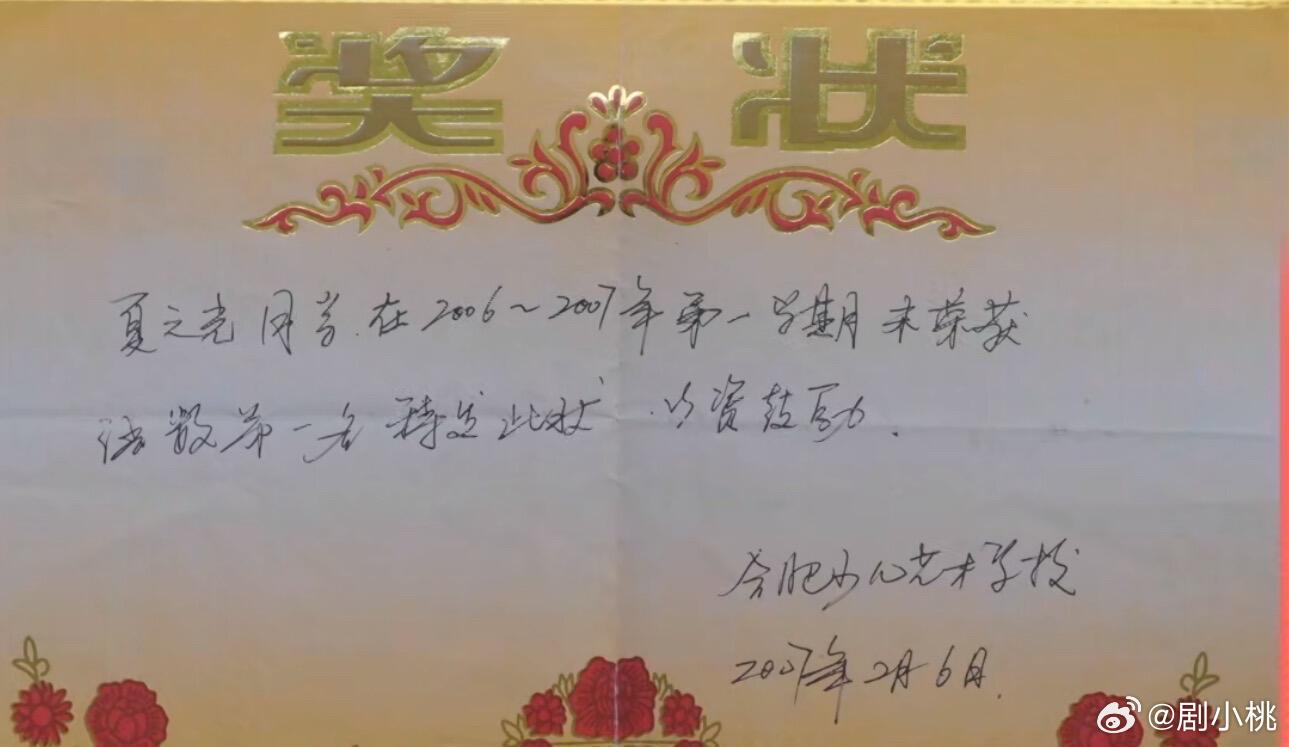 奖状
夏之光同学.在2006~2007年第一学期末荣获
语数第一名 特发此状.以资鼓励.
合肥少儿艺术学校
2007年2月6日.
@剧小桃